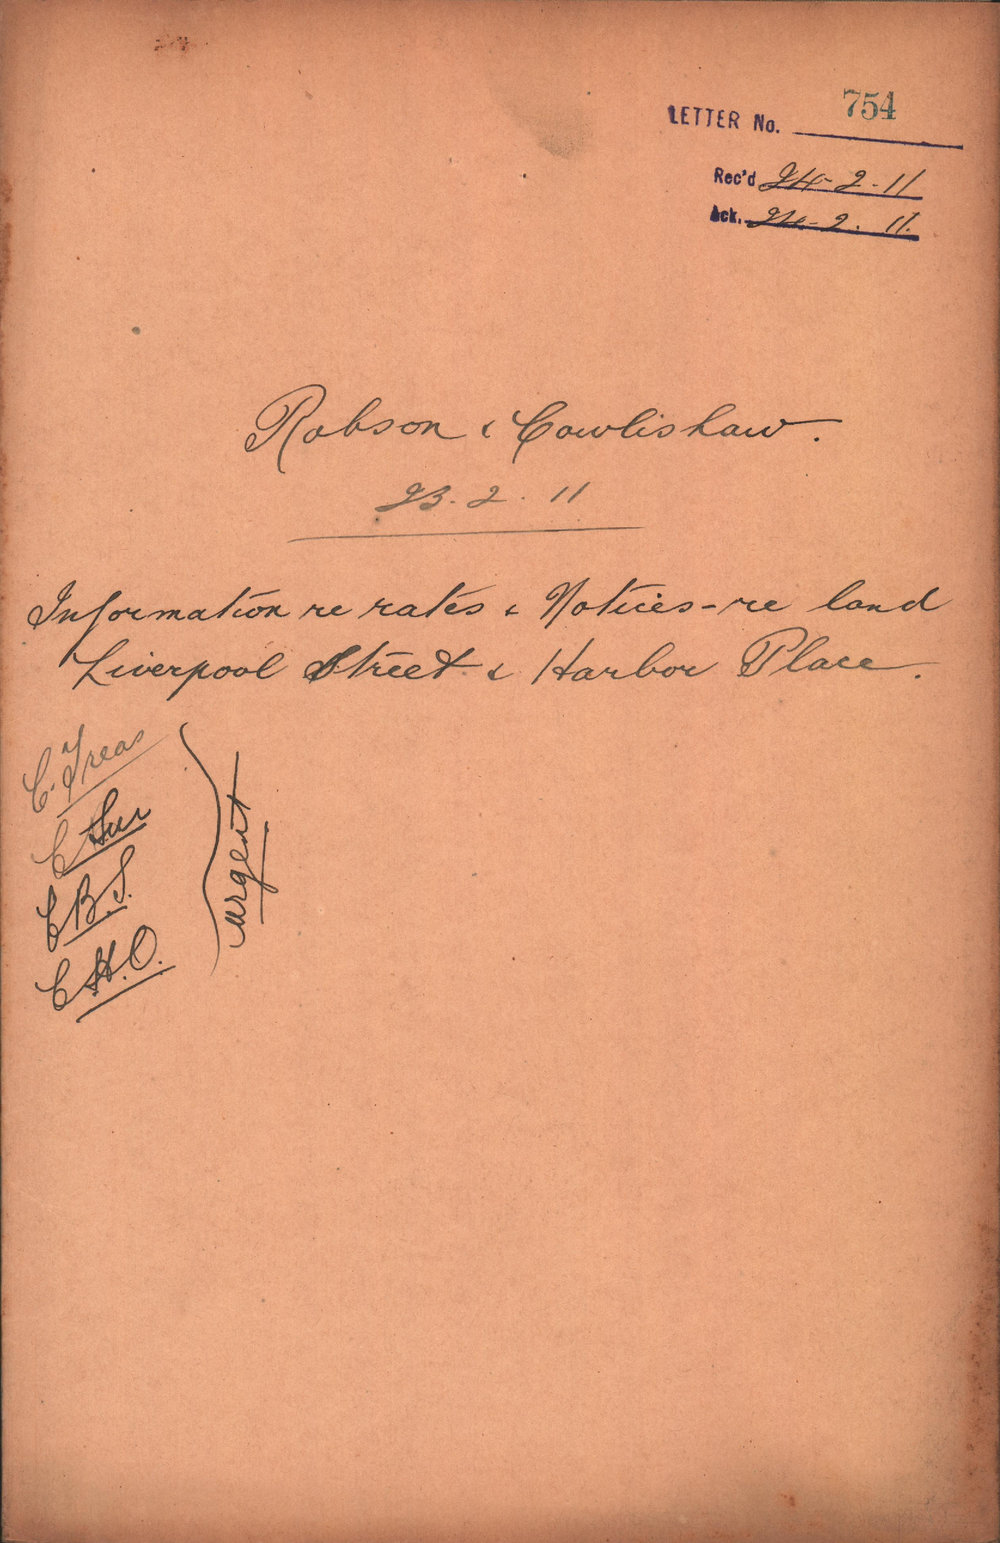 LETTER No. 754
Rec'd 24-2-11
Ack. 24-2.11.
Robson & Cowlishaw.
23.2.11
Information re rates & Notices-re land
Liverpool Street & Harbor Place.
C. Treas
C Sur
C B.S.
C H.O.
urgent